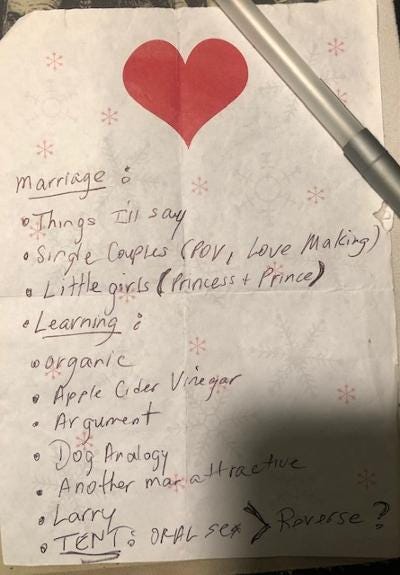 Marriage :
• Things I'll say
• Single Couples (POV, Love Making)
• Little girls (Princess + Prince)
• Learning :
• organic
• Apple Cider Vinegar
• Argument
• Dog Analogy
• Another man attractive
• Larry
• TENT: ORAL SEX > Reverse ?